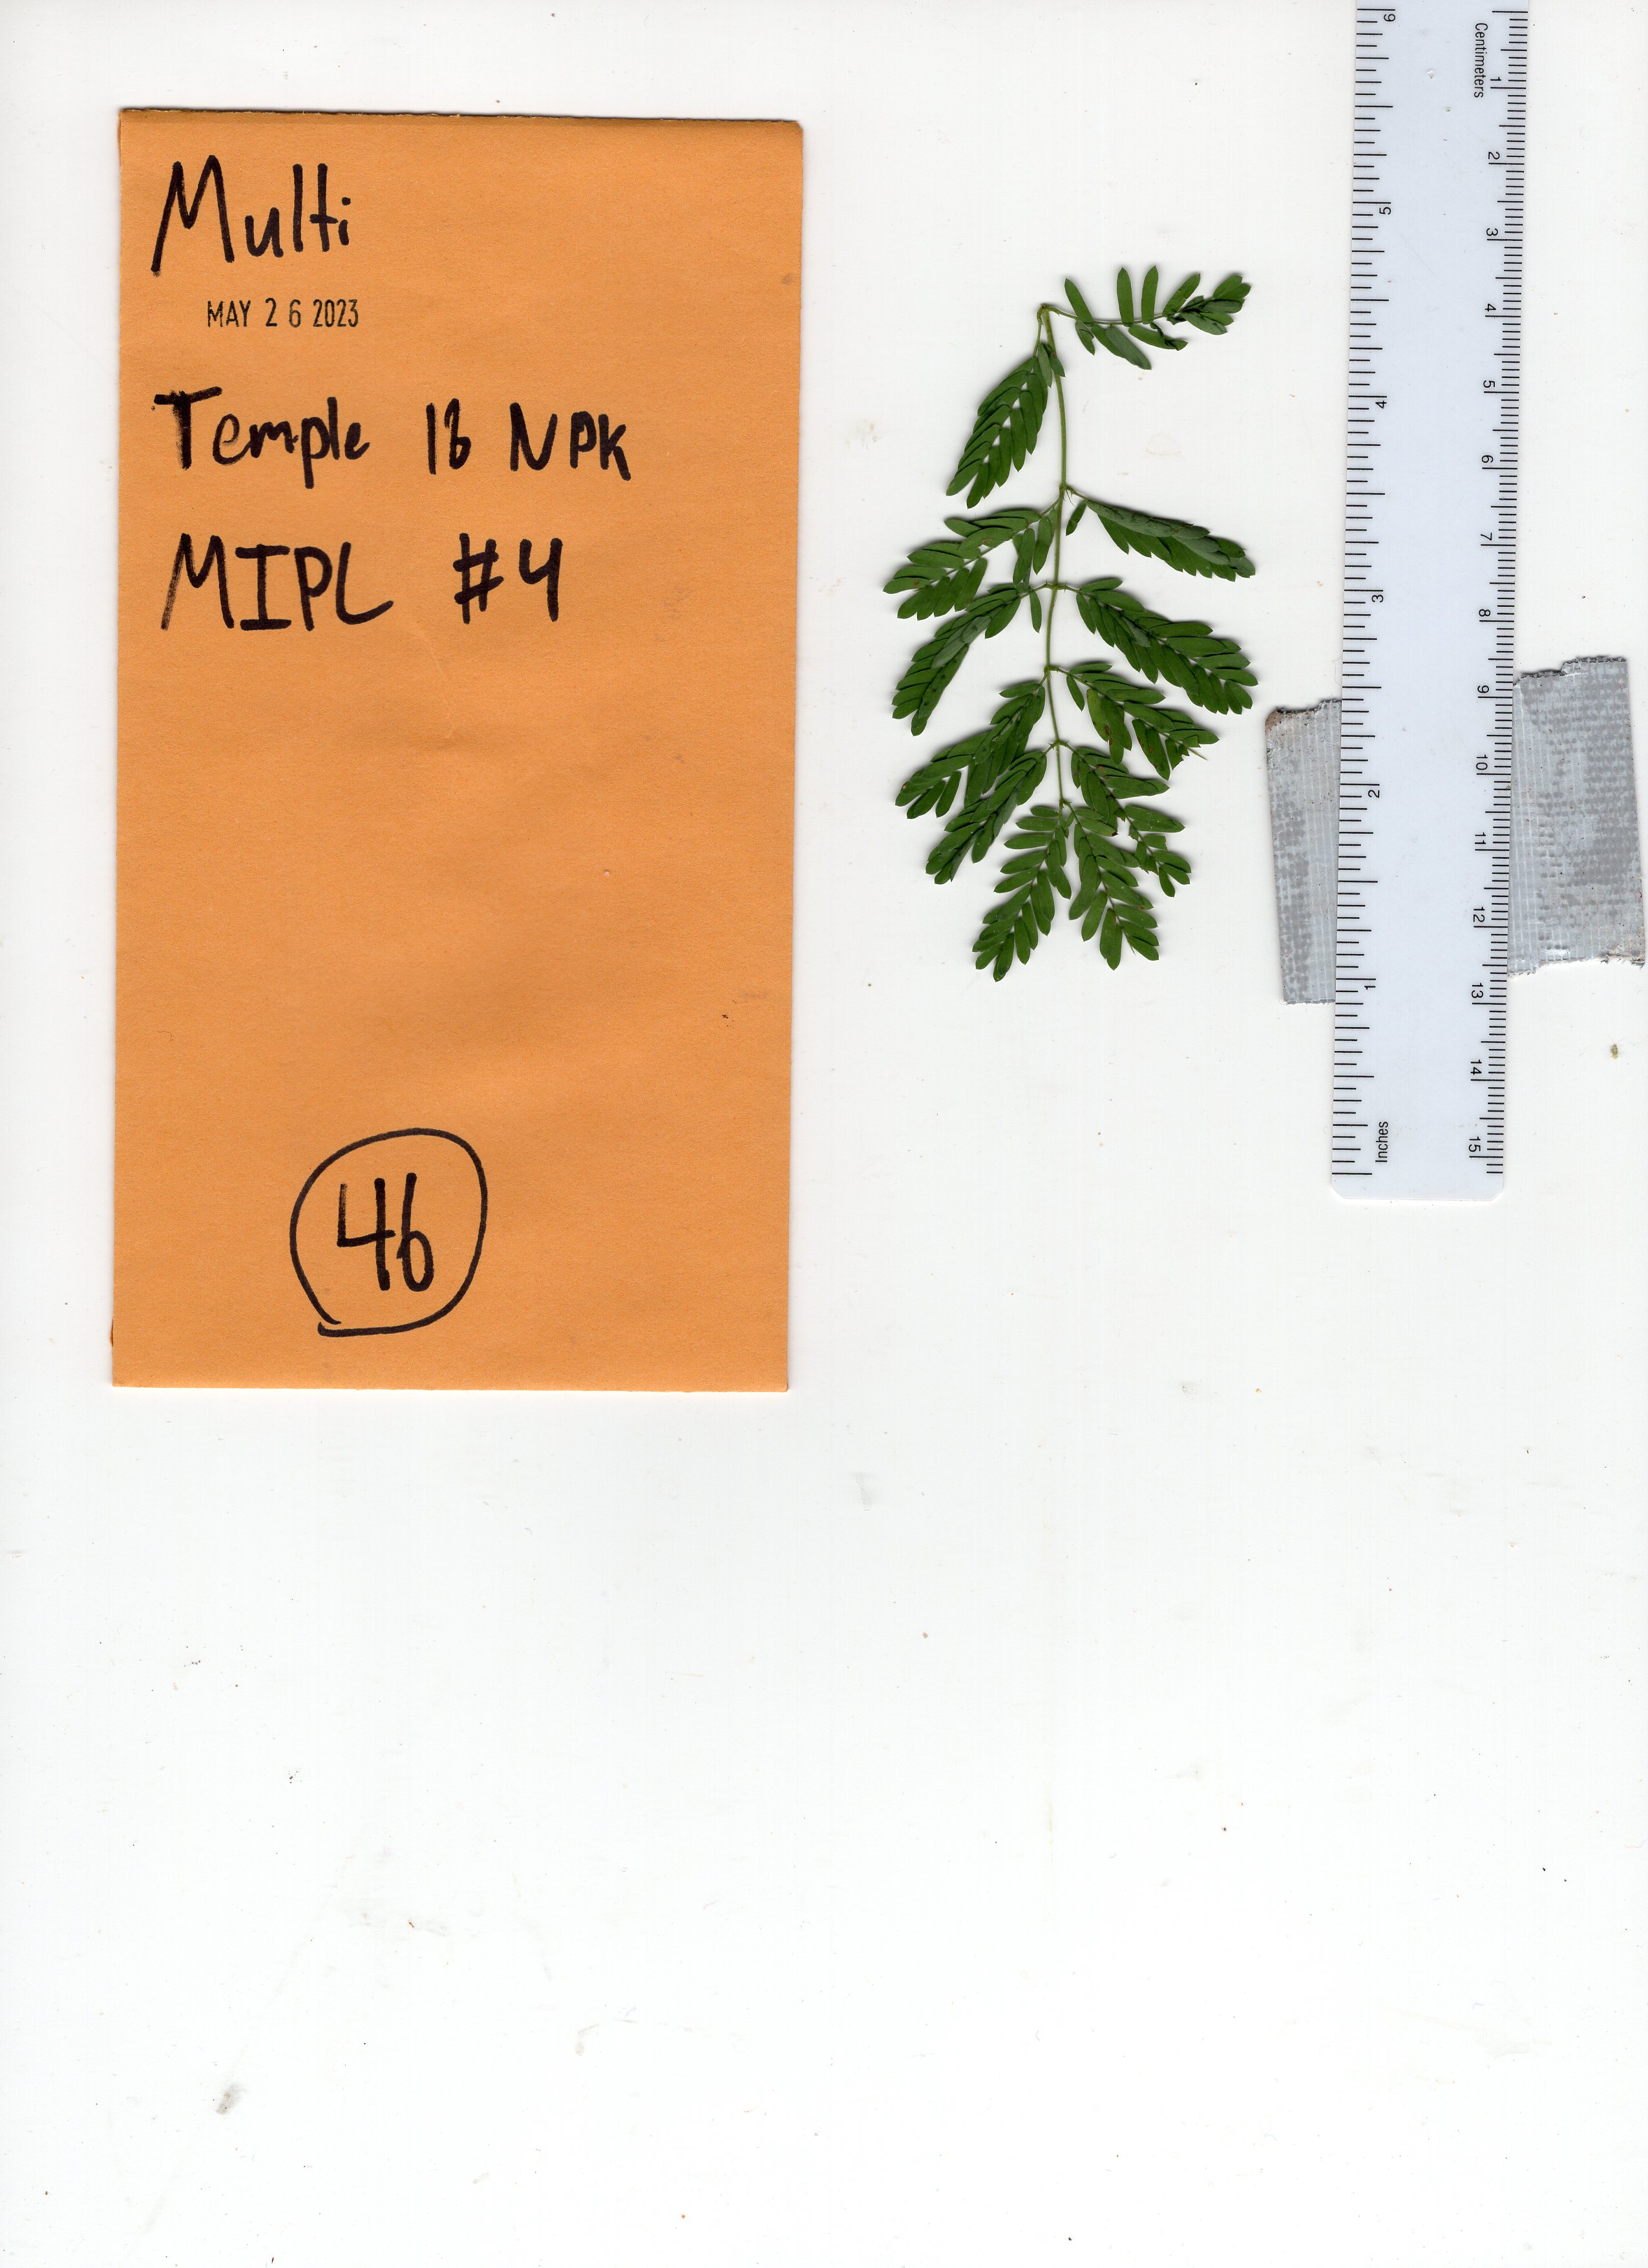 Multi
MAY 26 2023
Temple 16 NPK
MIPL #4
46
Centimeters
1
2
3
4
5
6
7
8
9
10
11
12
13
14
15
6
5
4
3
2
1
Inches